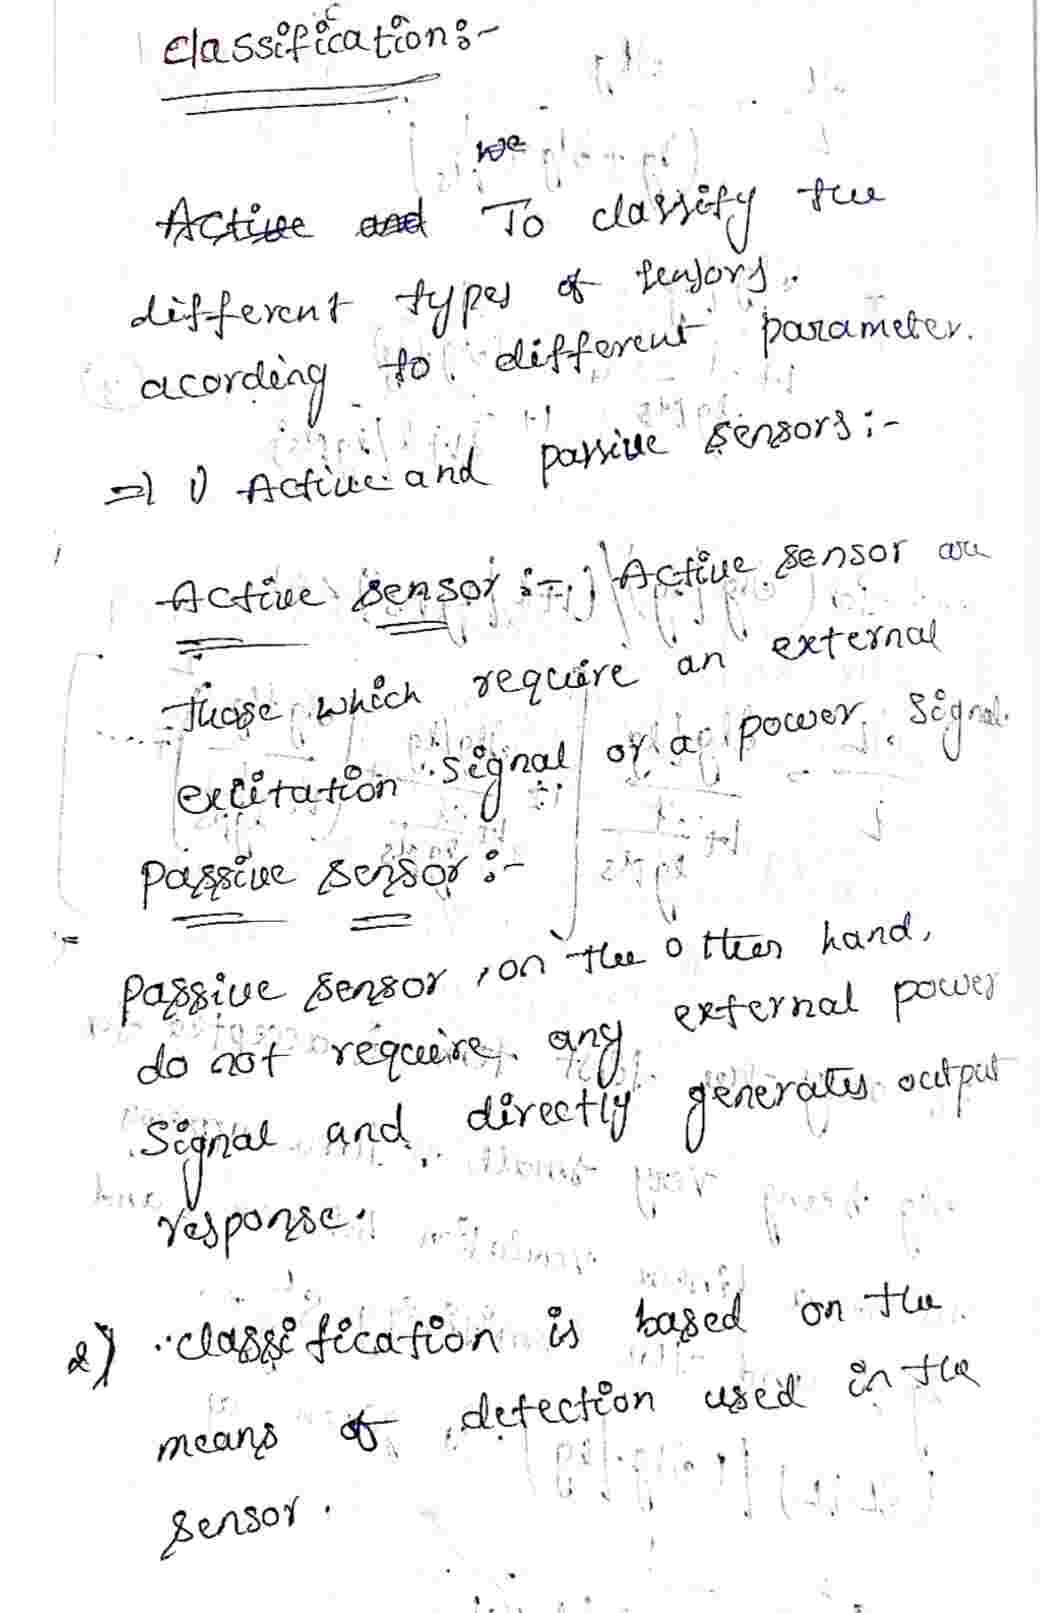 Classification:-
we
Active and To classify the
different types of sensors.
acording to different parameter.
=> 1) Active and passive sensors:-
Active sensor :- Active sensor are
those which require an external
excitation signal or a power signal
Passive sensor :-
Passive sensor, on the other hand,
do not require any external power
signal and directly generates output
response.
2) classification is based on the
means of detection used in the
sensor.